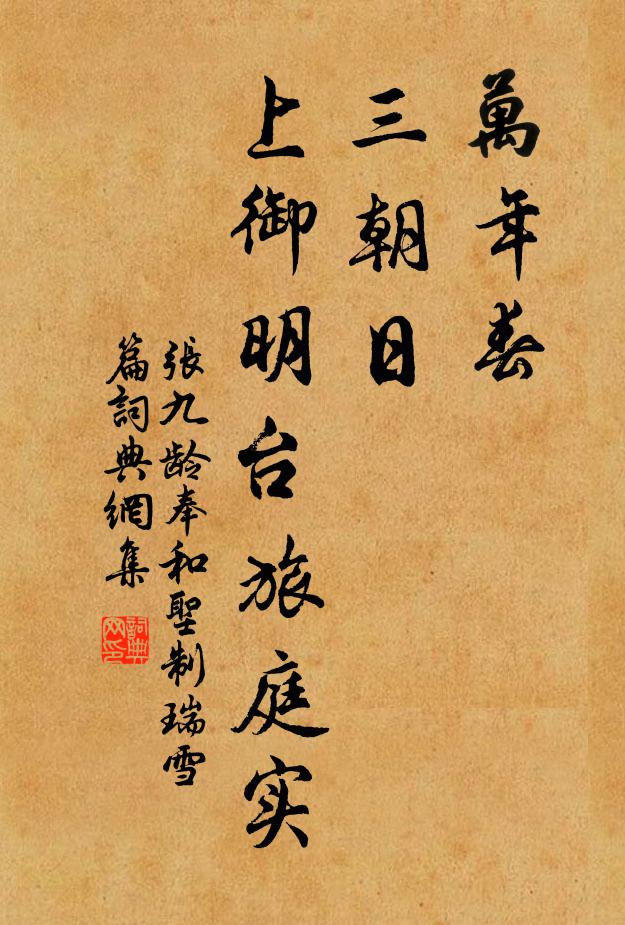 萬年春
三朝日
上御明台旅庭实
張九龄奉和聖制瑞雪
篇詞典網集
詞典
网印